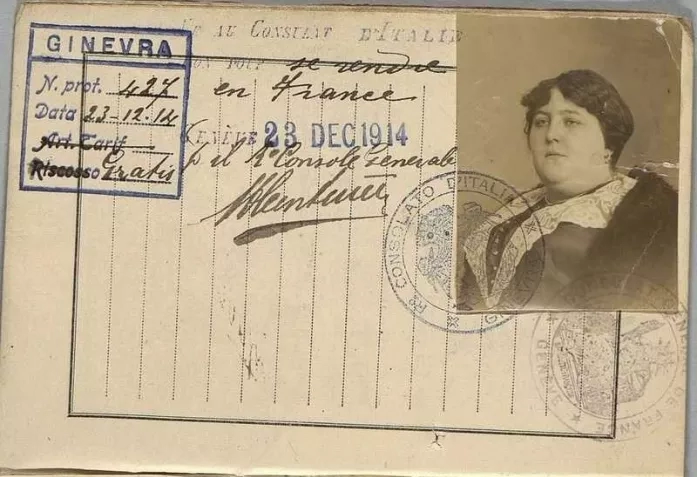 GINEVRA
N. prot. 427
Data 23-12-14
Art. Tarif
Riscosso Gratis
VU AU CONSULAT D'ITALIE
BON POUR se rendre
en France
GENÈVE 23 DEC 1914
p il R° Console Generale
R° CONSOLATO D'ITALIA
DE FRANCE